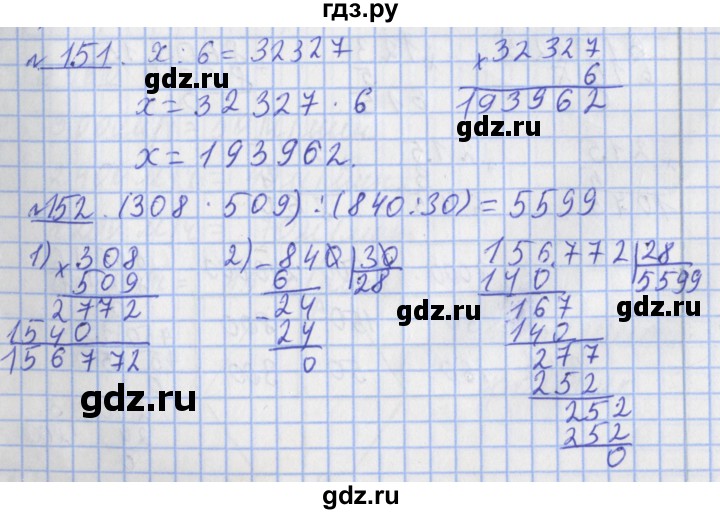 гдз.ру
№ 151. x : 6 = 32327
x = 32327 · 6
x = 193962.
× 32327
6
193962
gdz.ru
gdz.ru
№152. (308 · 509) : (840 : 30) = 5599
1) × 308
509
2772
1540
156772
2) - 840 | 30
6 28
- 24
24
0
156772 | 28
140 5599
167
140
277
252
252
252
0
gdz.ru
gdz.ru
gdz.ru
gdz.ru